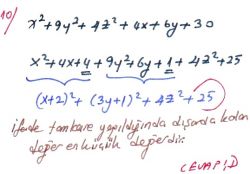 10/
x²+9y²+4z²+4x+6y+30
x²+4x+4+9y²+6y+1+4z²+25
(x+2)²+(3y+1)²+4z²+25
ifade tamkare yapıldığında dışarda kalan
değer en küçük değerdir.
CEVAP: D